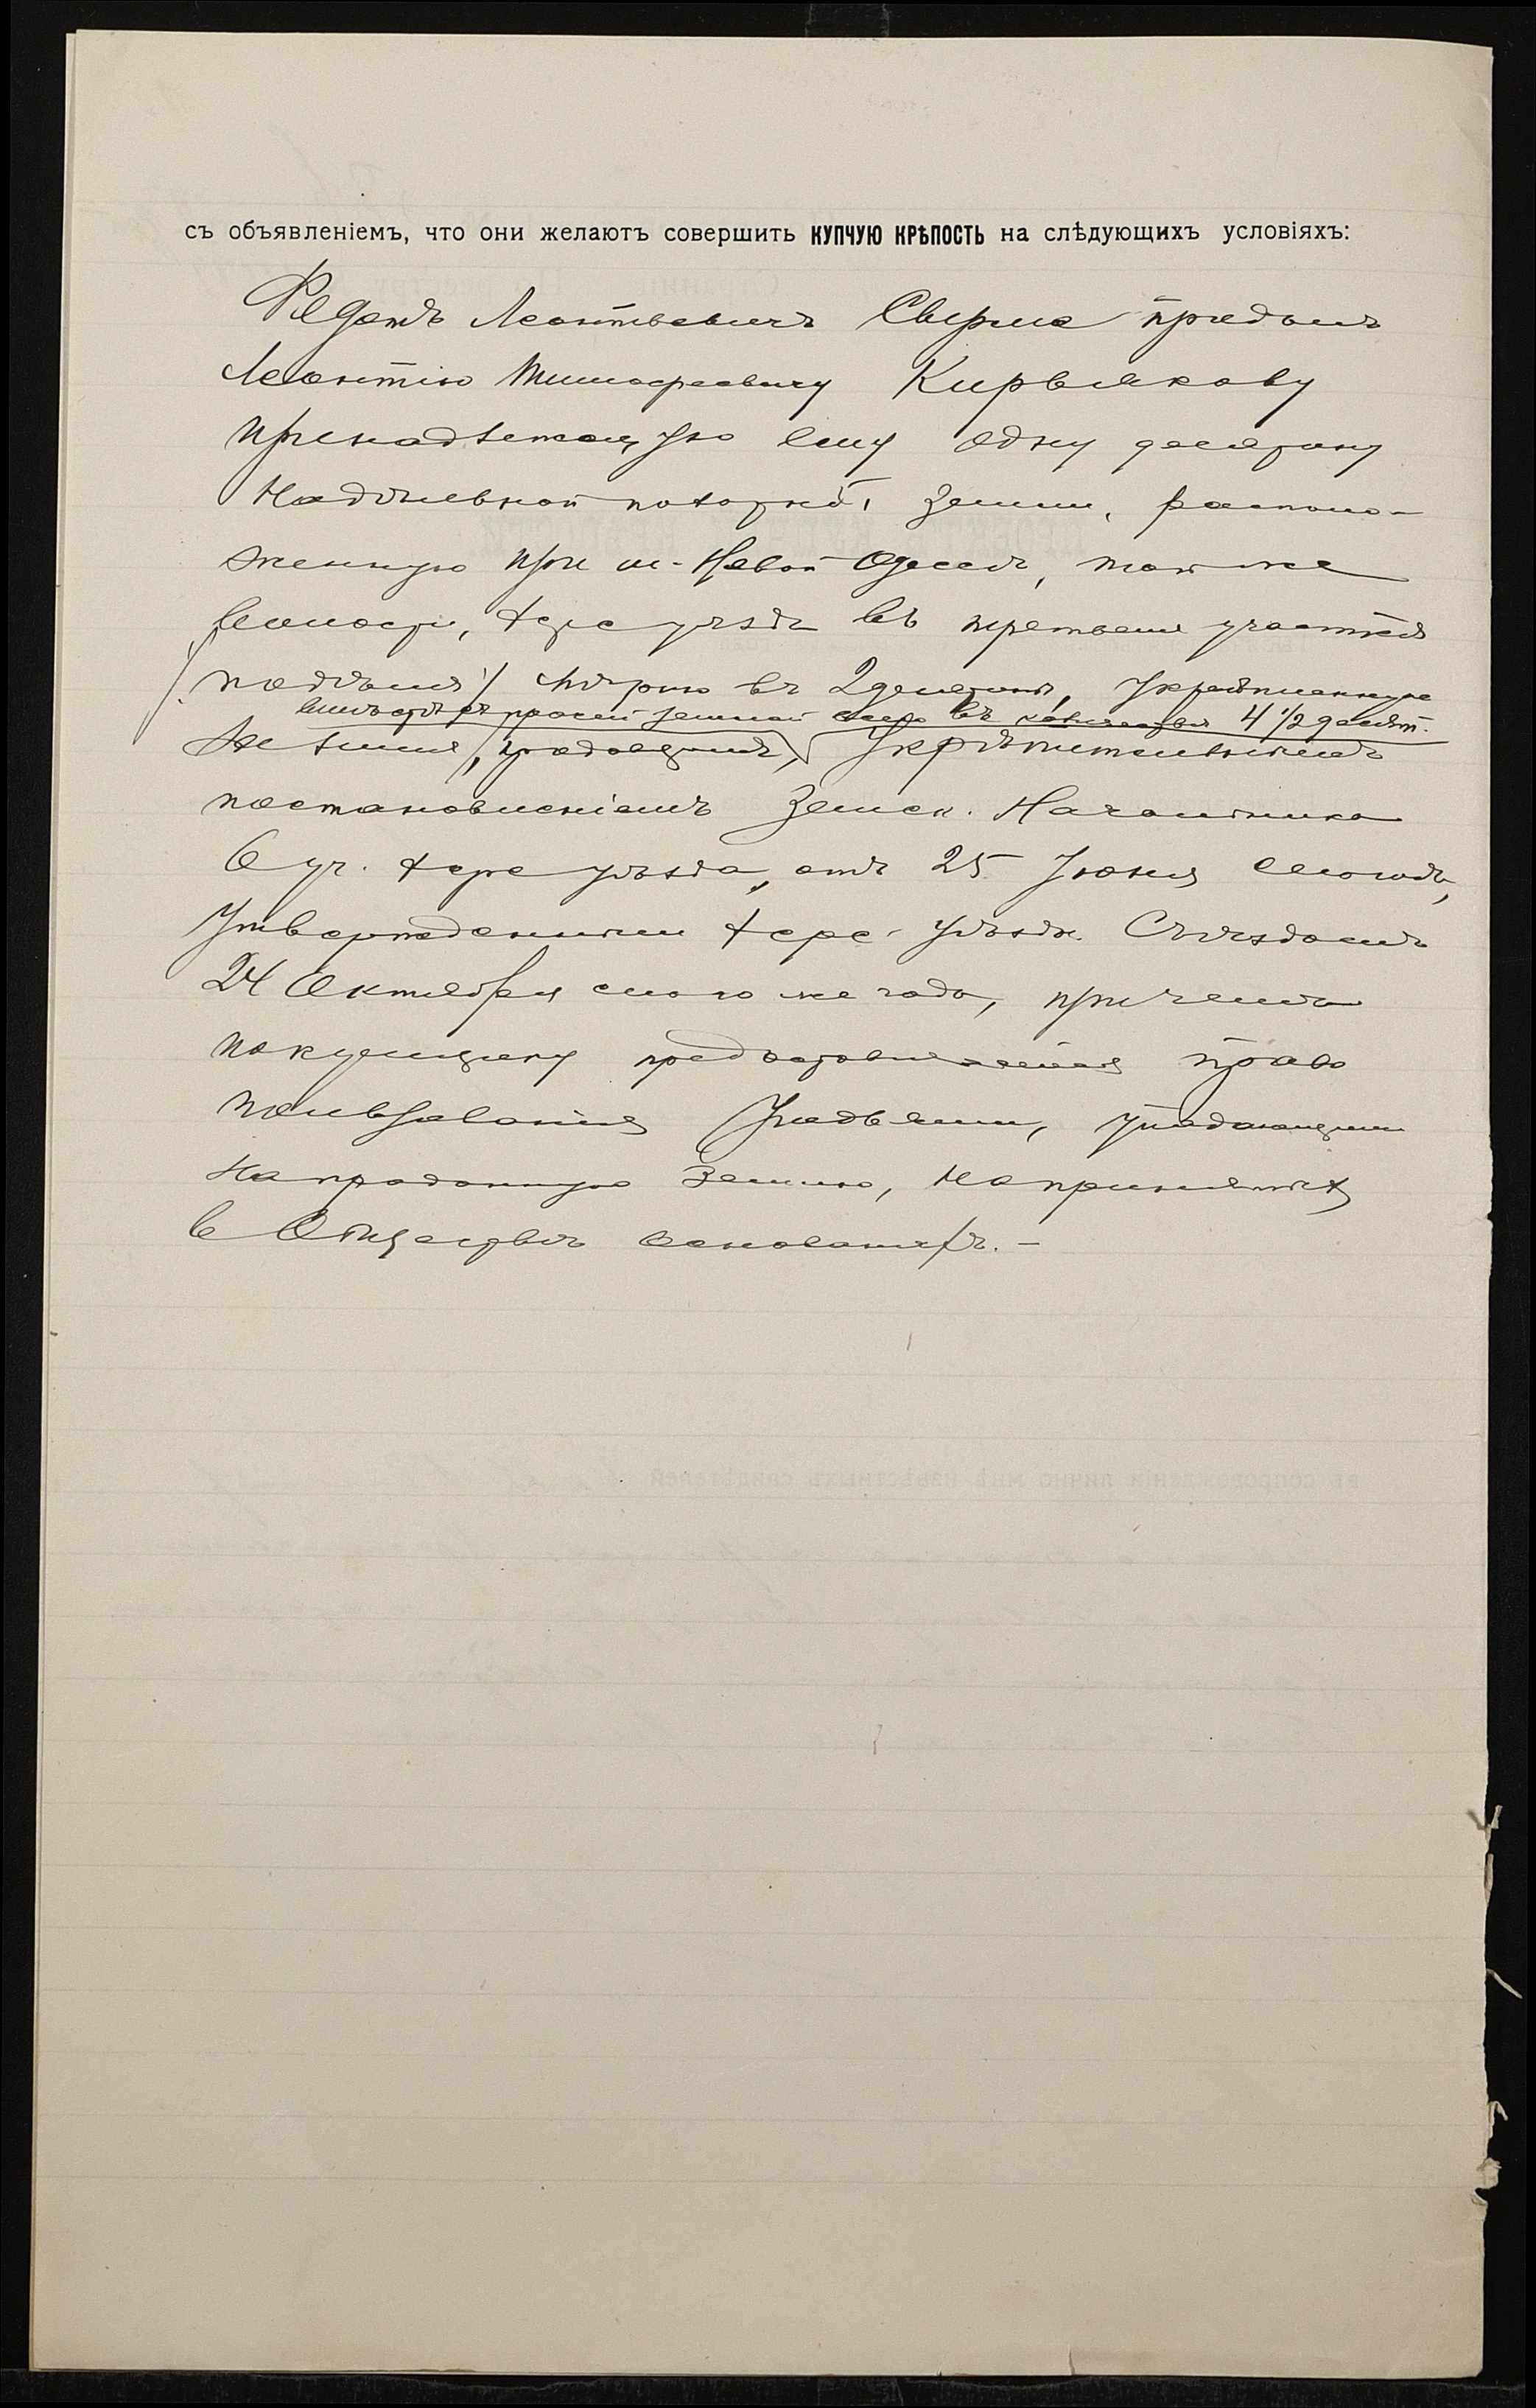 съ объявленіемъ, что они желаютъ совершить КУПЧУЮ КРѢПОСТЬ на слѣдующихъ условіяхъ:
Федотъ Леонтьевичъ продалъ
Леонтію Тимофеевичу Кирьякову
принадлежащую ему одну десятину
надѣльной пахотной земли, располо-
женную при м. Новой Одессѣ, той же
волости, Херс уѣзда въ третьемъ участкѣ
мѣрою въ 2 десятины, укрѣпленную
вмѣстѣ съ прочей землей всего въ количествѣ 4 1/2 десят.
за нимъ, продавцомъ, укрѣпительнымъ
постановленіемъ Земск. Начальника
6 уч. Херс уѣзда, отъ 25 Іюня сего года,
утвержденнымъ Херс. уѣздн. Съѣздомъ
24 Октября сего же года, причемъ
покупщику предоставляется право
пользованія угодьями, упадающими
на проданную землю, на принятыхъ
в Обществѣ основаніяхъ. -